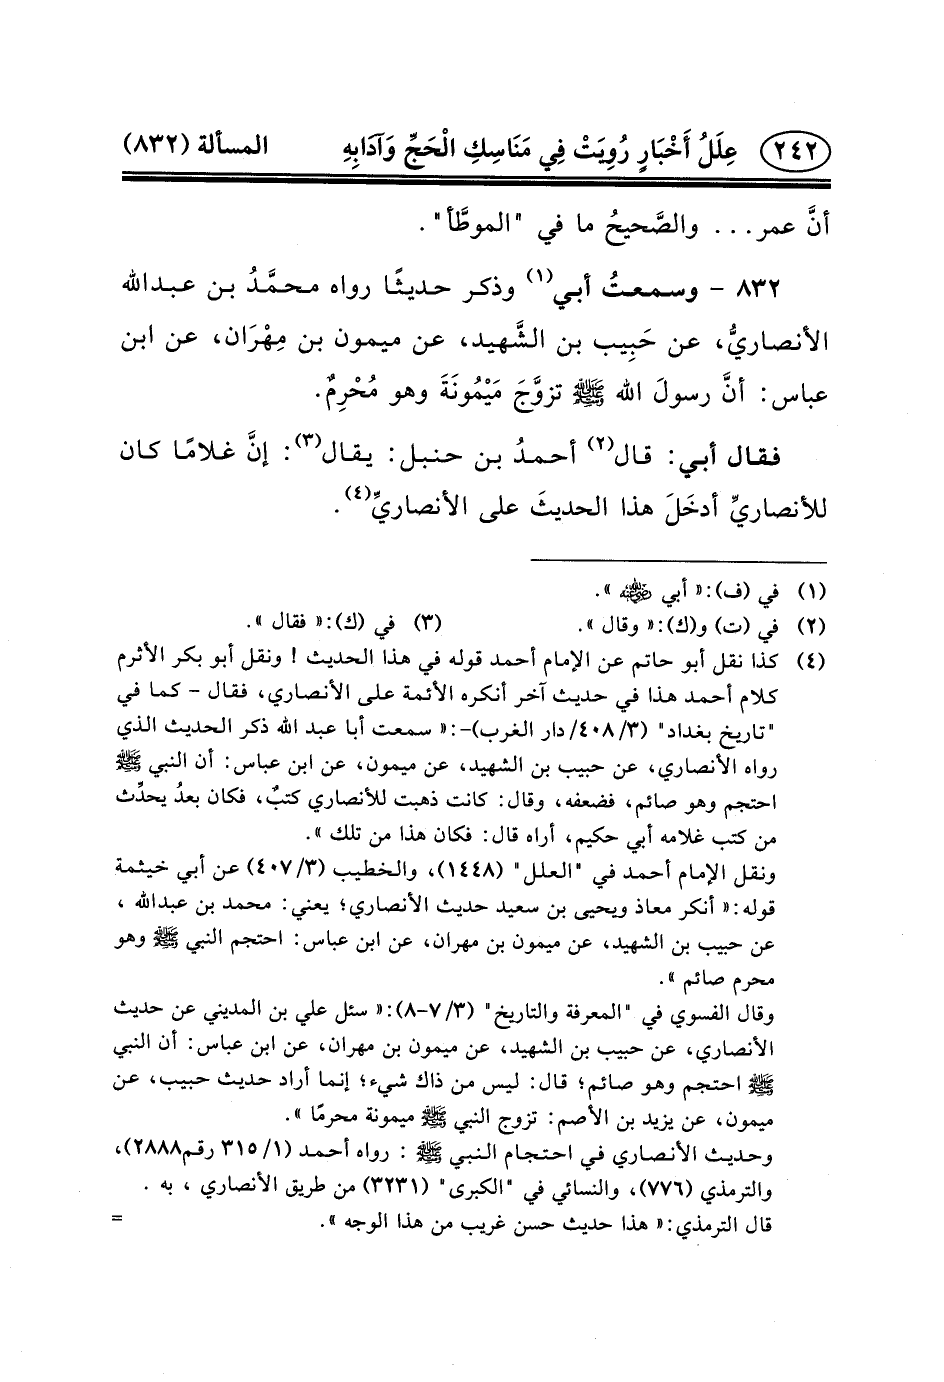 ٢٤٢ عِلَلُ أَخْبَارٍ رُوِيَتْ فِي مَنَاسِكِ الْحَجِّ وَآدَابِهِ المسألة (٨٣٢)
أنَّ عمر... والصَّحيحُ ما في "الموطَّأ".
٨٣٢ - وسمعتُ أبي(١) وذكر حديثًا رواه محمَّدُ بن عبدالله
الأنصاريُّ، عن حَبِيب بن الشَّهيد، عن ميمون بن مِهْرَان، عن ابن
عباس: أنَّ رسولَ الله ﷺ تزوَّجَ مَيْمُونَةَ وهو مُحْرِمٌ.
فقال أبي: قال(٢) أحمدُ بن حنبل: يقال(٣): إنَّ غلامًا كان
للأنصاريِّ أدخَلَ هذا الحديثَ على الأنصاريِّ(٤).
(١) في (ف): « أبي ﵁ ».
(٢) في (ت) و(ك): « وقال ». (٣) في (ك): « فقال ».
(٤) كذا نقل أبو حاتم عن الإمام أحمد قوله في هذا الحديث ! ونقل أبو بكر الأثرم
كلام أحمد هذا في حديث آخر أنكره الأئمة على الأنصاري، فقال - كما في
"تاريخ بغداد" (٣/ ٤٠٨/ دار الغرب)-: « سمعت أبا عبد الله ذكر الحديث الذي
رواه الأنصاري، عن حبيب بن الشهيد، عن ميمون، عن ابن عباس: أن النبي ﷺ
احتجم وهو صائم، فضعفه، وقال: كانت ذهبت للأنصاري كتبٌ، فكان بعدُ يحدِّث
من كتب غلامه أبي حكيم، أراه قال: فكان هذا من تلك ».
ونقل الإمام أحمد في "العلل" (١٤٤٨)، والخطيب (٣/ ٤٠٧) عن أبي خيثمة
قوله: « أنكر معاذ ويحيى بن سعيد حديث الأنصاري؛ يعني: محمد بن عبدالله ،
عن حبيب بن الشهيد، عن ميمون بن مهران، عن ابن عباس: احتجم النبي ﷺ وهو
محرم صائم ».
وقال الفسوي في "المعرفة والتاريخ" (٣/ ٧-٨): « سئل علي بن المديني عن حديث
الأنصاري، عن حبيب بن الشهيد، عن ميمون بن مهران، عن ابن عباس: أن النبي
ﷺ احتجم وهو صائم؛ قال: ليس من ذاك شيء؛ إنما أراد حديث حبيب، عن
ميمون، عن يزيد بن الأصم: تزوج النبي ﷺ ميمونة محرمًا ».
وحديث الأنصاري في احتجام النبي ﷺ : رواه أحمد (١/ ٣١٥ رقم٢٨٨٨)،
والترمذي (٧٧٦)، والنسائي في "الكبرى" (٣٢٣١) من طريق الأنصاري ، به .
قال الترمذي: « هذا حديث حسن غريب من هذا الوجه ». =